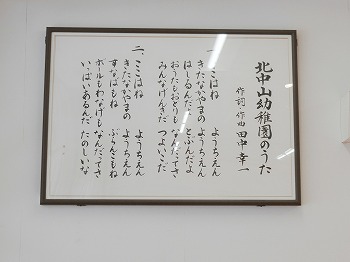 北中山幼稚園のうた
作詞 作曲 田中幸一
一、ここはね ようちえん
きたなかやまの ようちえん
はしるんだよ とぶんだよ
おうたもおどりも なんだってさ
みんなげんきだ つよいこだ
二、ここはね ようちえん
きたなかやまの ようちえん
すなばもね ぶらんこもね
ボールもわなげも なんだってさ
いっぱいあるんだ たのしいな